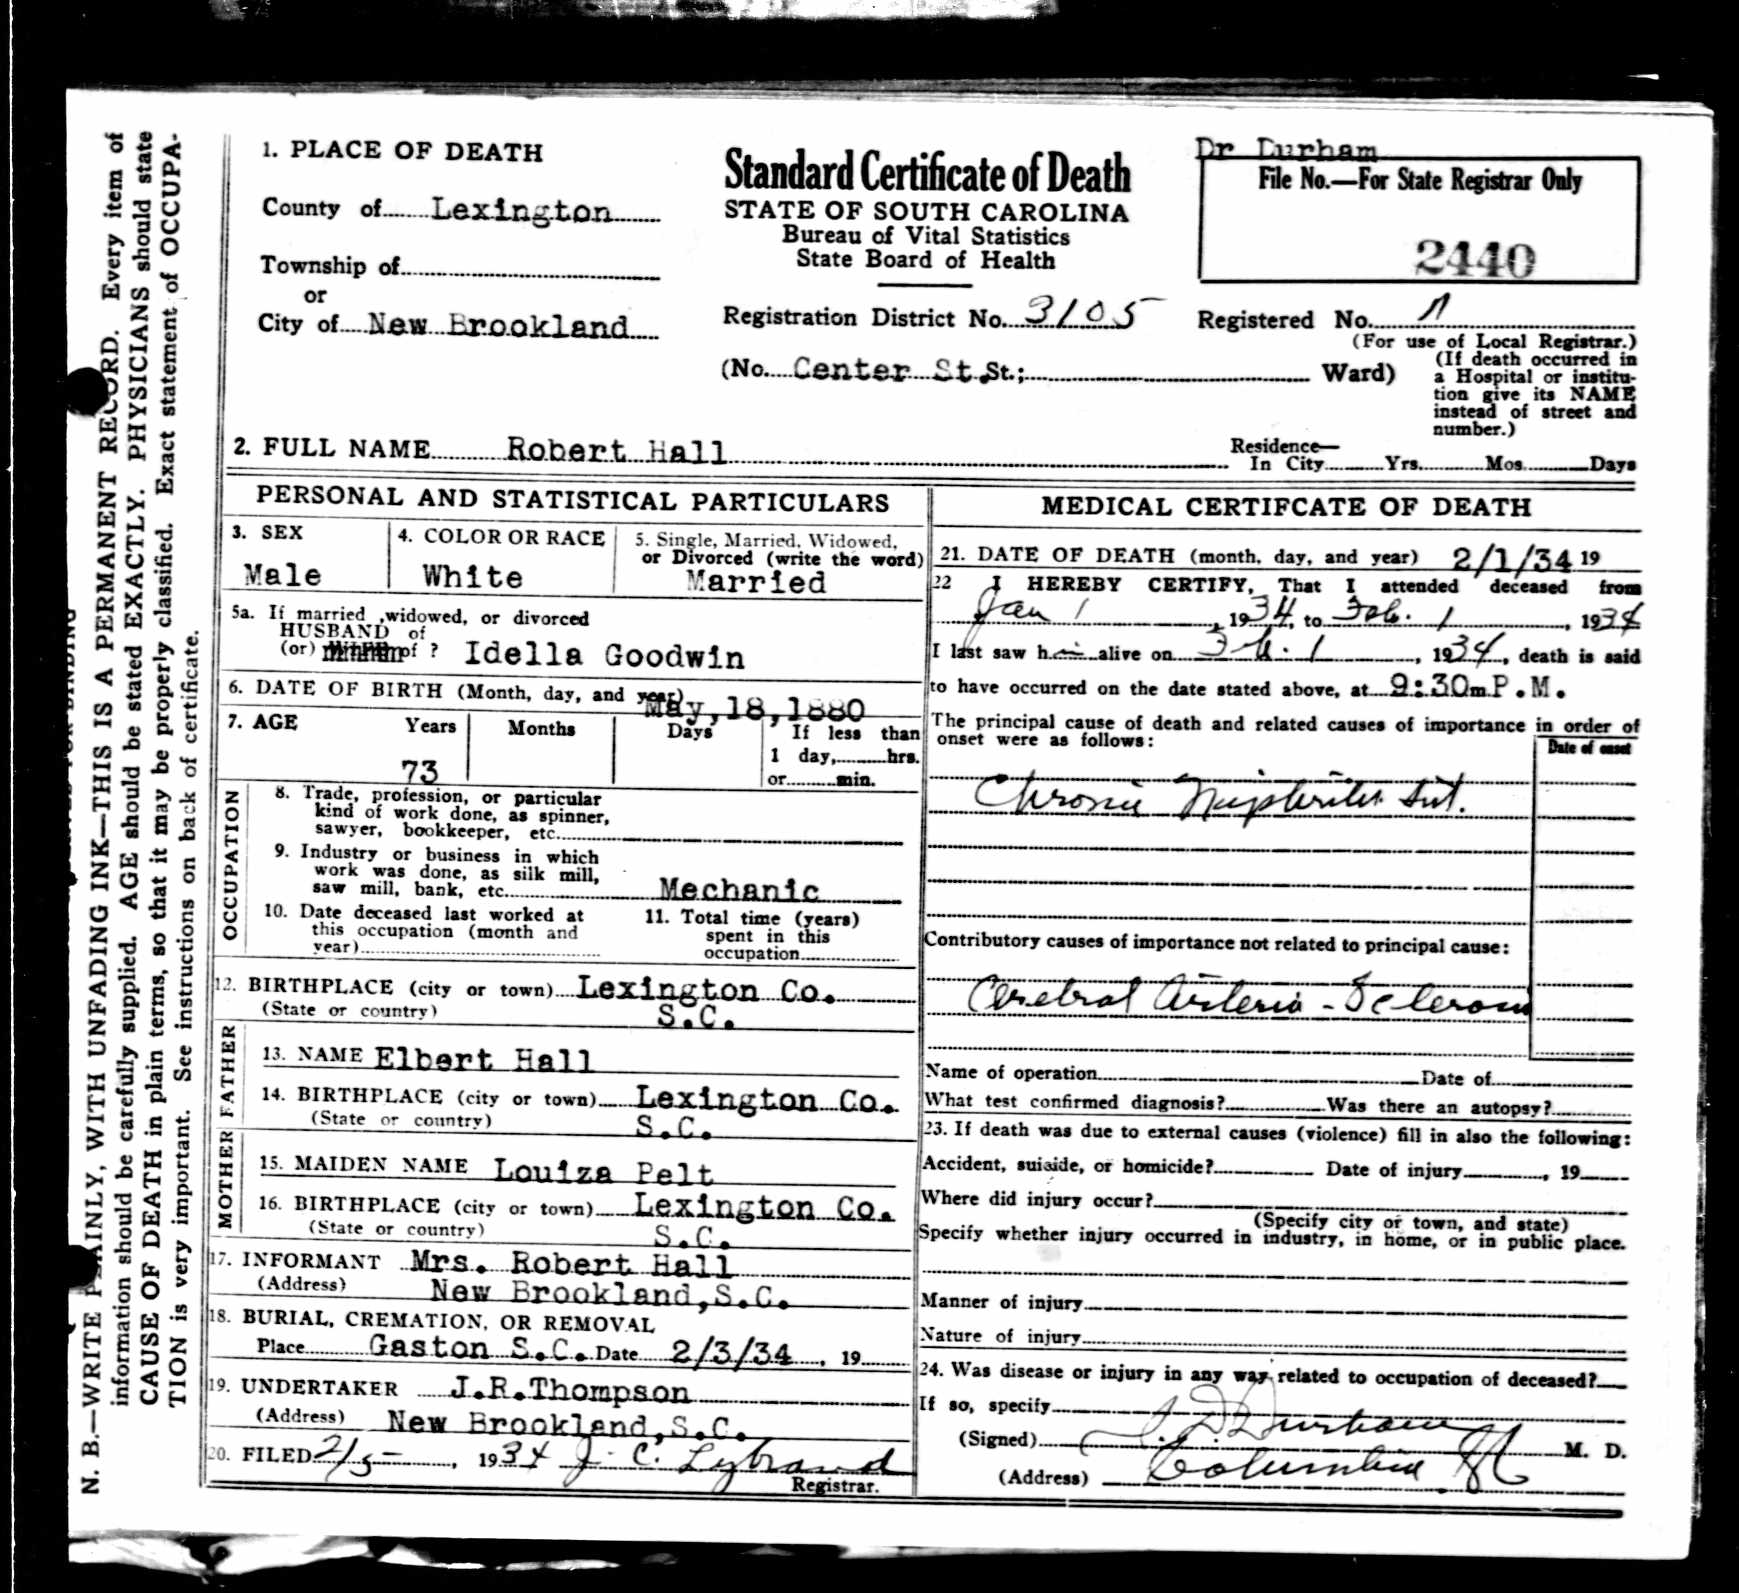 Dr Durham
1. PLACE OF DEATH
County of Lexington
Township of
or
City of New Brookland
Standard Certificate of Death
STATE OF SOUTH CAROLINA
Bureau of Vital Statistics
State Board of Health
File No.—For State Registrar Only
2440
Registration District No. 3105
Registered No.
(For use of Local Registrar.)
(No. Center St. St.; Ward)
(If death occurred in
a Hospital or institu-
tion give its NAME
instead of street and
number.)
2. FULL NAME Robert Hall
Residence—
In City Yrs. Mos. Days
PERSONAL AND STATISTICAL PARTICULARS
3. SEX
Male
4. COLOR OR RACE
White
5. Single, Married, Widowed,
or Divorced (write the word)
Married
5a. If married ,widowed, or divorced
HUSBAND of
(or) of ? Idella Goodwin
6. DATE OF BIRTH (Month, day, and year)
May,18,1880
7. AGE Years Months Days If less than
1 day, hrs.
73 or min.
OCCUPATION
8. Trade, profession, or particular
kind of work done, as spinner,
sawyer, bookkeeper, etc.
9. Industry or business in which
work was done, as silk mill,
saw mill, bank, etc. Mechanic
10. Date deceased last worked at
this occupation (month and
year)
11. Total time (years)
spent in this
occupation
12. BIRTHPLACE (city or town) Lexington Co.
(State or country) S.C.
FATHER
13. NAME Elbert Hall
14. BIRTHPLACE (city or town) Lexington Co.
(State or country) S.C.
MOTHER
15. MAIDEN NAME Louiza Pelt
16. BIRTHPLACE (city or town) Lexington Co.
(State or country) S.C.
17. INFORMANT Mrs. Robert Hall
(Address) New Brookland,S.C.
18. BURIAL, CREMATION, OR REMOVAL
Place Gaston S.C. Date 2/3/34 , 19
19. UNDERTAKER J.R.Thompson
(Address) New Brookland,S.C.
20. FILED 2/5- , 1934 J. C. Lybrand
Registrar.
MEDICAL CERTIFCATE OF DEATH
21. DATE OF DEATH (month, day, and year) 2/1/34 19
22 I HEREBY CERTIFY, That I attended deceased from
Jan 1 , 1934, to Feb. 1 , 1934
I last saw him alive on Feb. 1 , 1934, death is said
to have occurred on the date stated above, at 9:30m P.M.
The principal cause of death and related causes of importance in order of
onset were as follows:
Date of onset
Chronic Int.
Contributory causes of importance not related to principal cause:
Cerebral Arterio-Sclerosis
Name of operation Date of
What test confirmed diagnosis? Was there an autopsy?
23. If death was due to external causes (violence) fill in also the following:
Accident, suicide, or homicide? Date of injury , 19
Where did injury occur?
(Specify city or town, and state)
Specify whether injury occurred in industry, in home, or in public place.
Manner of injury
Nature of injury
24. Was disease or injury in any way related to occupation of deceased?
If so, specify
(Signed) Durham M. D.
(Address) Columbia SC
N. B.—WRITE PLAINLY, WITH UNFADING INK—THIS IS A PERMANENT RECORD. Every item of
information should be carefully supplied. AGE should be stated EXACTLY. PHYSICIANS should state
CAUSE OF DEATH in plain terms, so that it may be properly classified. Exact statement of OCCUPA-
TION is very important. See instructions on back of certificate.